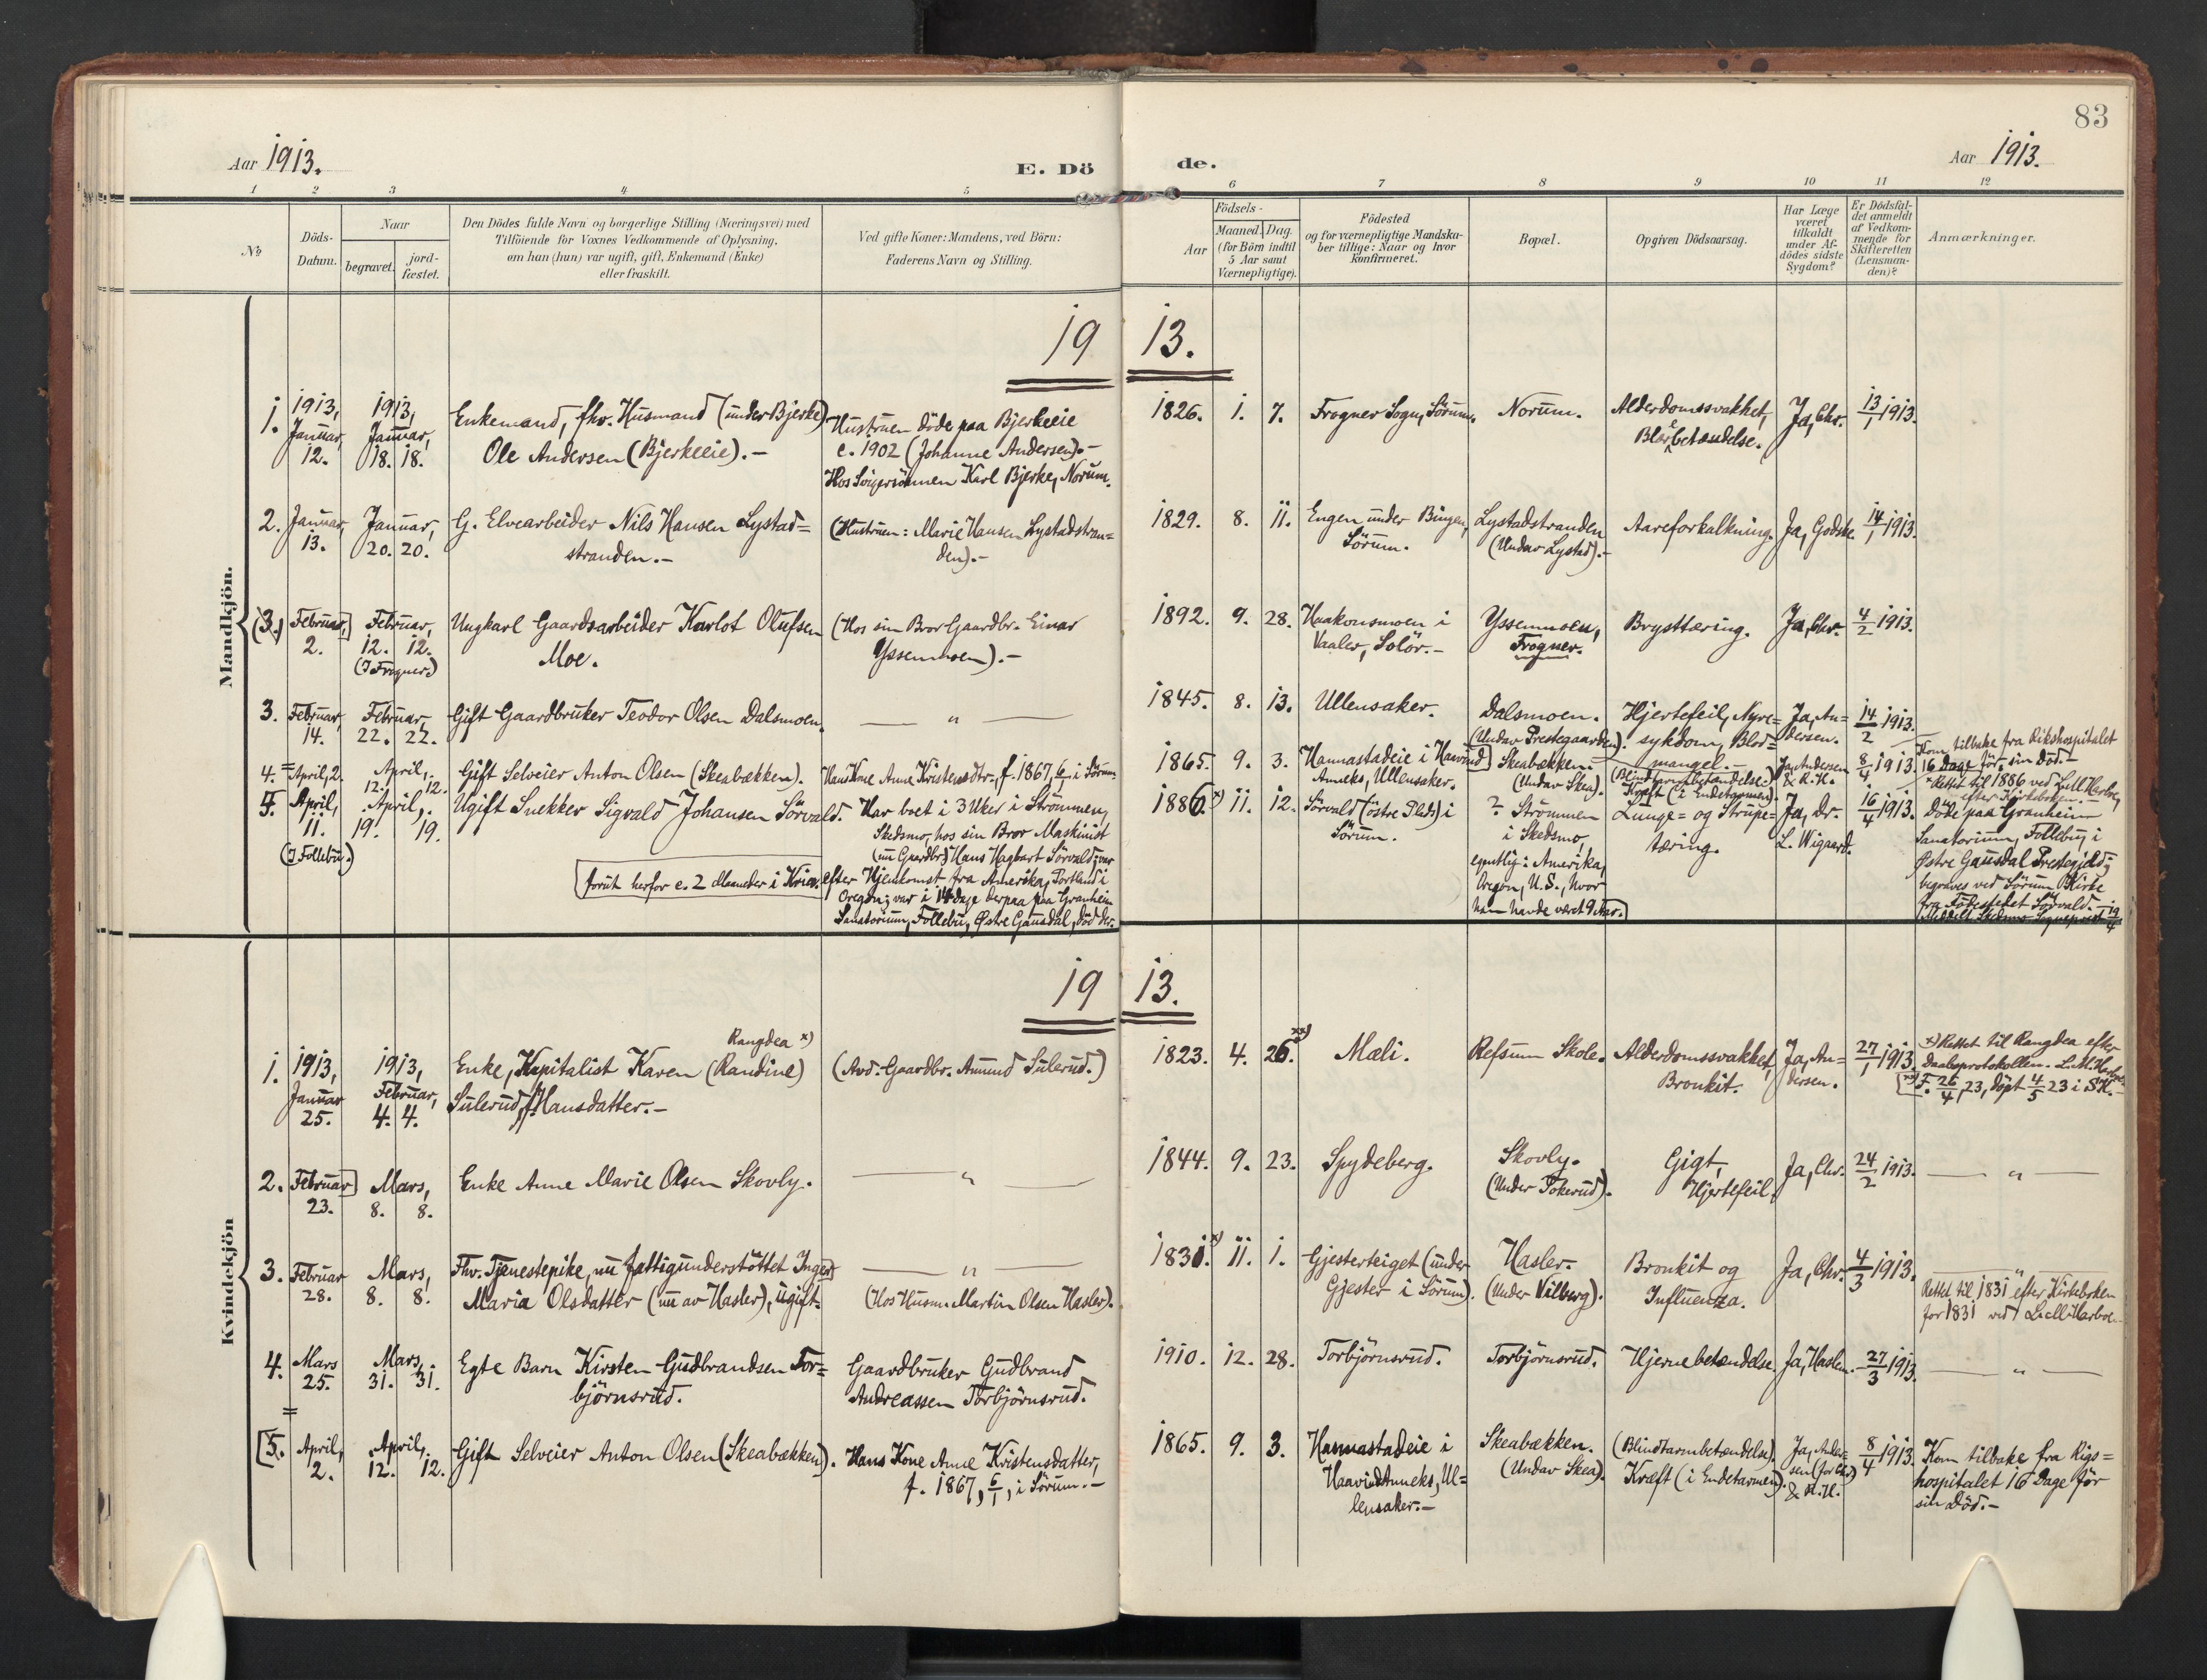 83
Aar 1913.
E. Dö
de.
Aar 1913.
1 2 3 4 5 6 7 8 9 10 11 12
No
Döds-
Datum.
Naar
begravet.
jord-
fæstet.
Den Dödes fulde Navn og borgerlige Stilling (Næringsvei) med
Tilföiende for Voxnes Vedkommende af Oplysning,
om han (hun) var ugift, gift, Enkemand (Enke)
eller fraskilt.
Ved gifte Koner: Mandens, ved Börn:
Faderens Navn og Stilling.
Födsels-
Aar
Maaned. Dag.
(for Börn indtil
5 Aar samt
Værnepligtige).
Födested
og for værnepligtige Mandska-
ber tillige: Naar og hvor
konfirmeret.
Bopæl.
Opgiven Dödsaarsag.
Har Læge
været
tilkaldt
under Af-
dödes sidste
Sygdom?
Er Dödsfal-
det anmeldt
af Vedkom-
mende for
Skifteretten
(Lensman-
den)?
Anmærkninger.
Mandkjön.
19 13.
1.
1913,
Januar,
12.
1913,
Januar,
18. 18.
Enkemand, fhv. Husmand (under Bjerke)
Ole Andersen (Bjerkeeie).-
Hustruen döde paa Bjerkeeie
c. 1902 (Johanne Andersen).-
Hos Svigersönnen Karl Bjerke, Norum.
1826. 1. 7.
Frogner Sogn, Sörum.
Norum.
Alderdomssvakhet,
Blærebetændelse.
Ja, Chr.
13/1 1913.
2.
Januar,
13.
Januar,
20. 20.
G. Elvearbeider Nils Hansen Lystad=
stranden.-
(Hustruen: Marie Hansen Lystadstran=
den).-
1829. 8. 11.
Engen under Bingen,
Sörum.
Lystadstranden
(Undav Lystad).-
Aareforkalkning.
Ja, Godske
14/1 1913.
(3.)
Februar,
2.
Februar,
12. 12.
(I Frogner)
Ungkarl Gaardsarbeider Karlot Olufsen
Moe.
(Hos sin Bror Gaardbr. Einar
Yssenmoen).-
1892. 9. 28.
Haakonsmoen i
Vaaler, Solör.-
Yssenmoen,
Frogner.
Brysttæring.
Ja, Chr.
4/2 1913.
3.
Februar,
14.
Februar,
22. 22.
Gift Gaardbruker Teodor Olsen Dalsmoen.
— " —
1845. 8. 13.
Ullensaker.
Dalsmoen.
(Undav Prestegaarden).
Hjertefeil, Nyre=
sykdom, Blod=
mangel.-
Ja, An=
dersen.
14/2 1913.
4.
April, 2.
April,
12. 12.
Gift Selveier Anton Olsen (Skeabækken).
Hans Kone Anne Kristensdtr., f. 1867, 6/1 i Sörum
1865. 9. 3.
Hannastadeie i Haavind
Anneks, Ullensaker.
Skeabækken.
(Undav Skea).
(Blindtarmbetændelse.)
Kræft (i Endetarmen).
Ja, Andersen
& R.H.
8/4 1913.
Kom tilbake fra Rikshospitalet
16 Dage för sin Död.-
5.
April,
11.
(I Follebu.)
April,
19. 19.
Ugift Snekker Sigvald Johansen Sörvald.
Har boet i 3 Uker i Strömmen,
Skedsmo, hos sin Bror Maskinist
(nu Gaardbr.) Hans Hagbart Sörvald; var
forut herfor c. 2 Maaneder i Kria.
efter Hjemkomst fra Amerika, Portland i
Oregon; var i 14 dage derpaa paa Granheim
Sanatorium, Follebu, Østre Gausdal, död der.
1886. x) 11. 12.
Sörvald (östre Plads) i
Sörum.
? Strömmen
i Skedsmo,
egentlig: Amerika,
Oregon, U.S., hvor
han havde været 9 Aar.
Lunge= og Strupe=
tæring.
Ja, Dr.
L. Wigaard.
16/4 1913.
x Rettet til 1886 ved Lull Harboe,
efter Kirkeboken.-
Döde paa Granheim
Sanatorium, Follebu i
Østre Gausdal Prestegjeld;
begraves ved Sörum Kirke
fra Födestedet Sörvald.-
Meddelt Skedmo Sogneprest 19/4
Kvindekjön
19 13.
1.
1913,
Januar
25.
1913,
Februar,
4. 4.
Rangdea x)
Enke, Kapitalist Karen (Randine)
Sulerud, f. Hansdatter.-
(Avd. Gaardbr. Amund Sulerud.)
1823. 4. 26. xx)
Mæli.
Refsum Skole.
Alderdomssvakhet,
Bronkit.
Ja, An=
dersen.
27/1 1913.
x) Rettet til Rangdea efter
Daabsprotokollen.
xx) F. 26/4 23, döpt 4/5 23 i S.K.-
2.
Februar
23.
Mars,
8. 8.
Enke Anne Marie Olsen Skovly.
— " —
1844. 9. 23.
Spydeberg.
Skovly.
(Under Tokerud).
Gigt,
Hjertefeil.
Ja, Chr.
24/2 1913.
— " —
3.
Februar
28.
Mars,
8. 8.
Fhv. Tjenestepike, nu fattigunderstöttet Inger
Maria Olsdatter (nu av Hasler), ugift.
— " —
(Hos Husm. Martin Olsen Hasler).
1831. x) 11. 1.
Gjesterteiget (under
Gjester i Sörum).
Hasler.
(Under Vilberg).
Bronkit og
Influenza.
Ja, Chr.
4/3 1913.
— " —
Rettet til 1831 efter Kirkeboken
for 1831 ved Lull Harboe.
4.
Mars
25.
Mars,
31. 31.
Egte Barn Kirsten Gudbrandsen Tor=
björnsrud.
Gaardbruker Gudbrand
Andreassen Torbjörnsrud.
1910. 12. 28.
Torbjörnsrud.
Torbjörnsrud.
Hjernebetændelse.
Ja, Haslen.
27/3 1913.
— " —
[5.
April,
2.
April,
12. 12.
Gift Selveier Anton Olsen (Skeabækken).
Hans Kone Anne Kristensdatter,
f. 1867, 6/1, i Sörum.-
1865. 9. 3.
Hannastadeie i
Haavind Anneks, Ul=
lensaker.-
Skeabækken.
(Undav Skea).
(Blindtarmbetændelse).
Kræft (i Endetarmen).
Ja, Ander=
sen (for Chr.)
& R.H.
8/4 1913.
Kom tilbake fra Rigs=
hospitalet 16 Dage för
sin Död.-